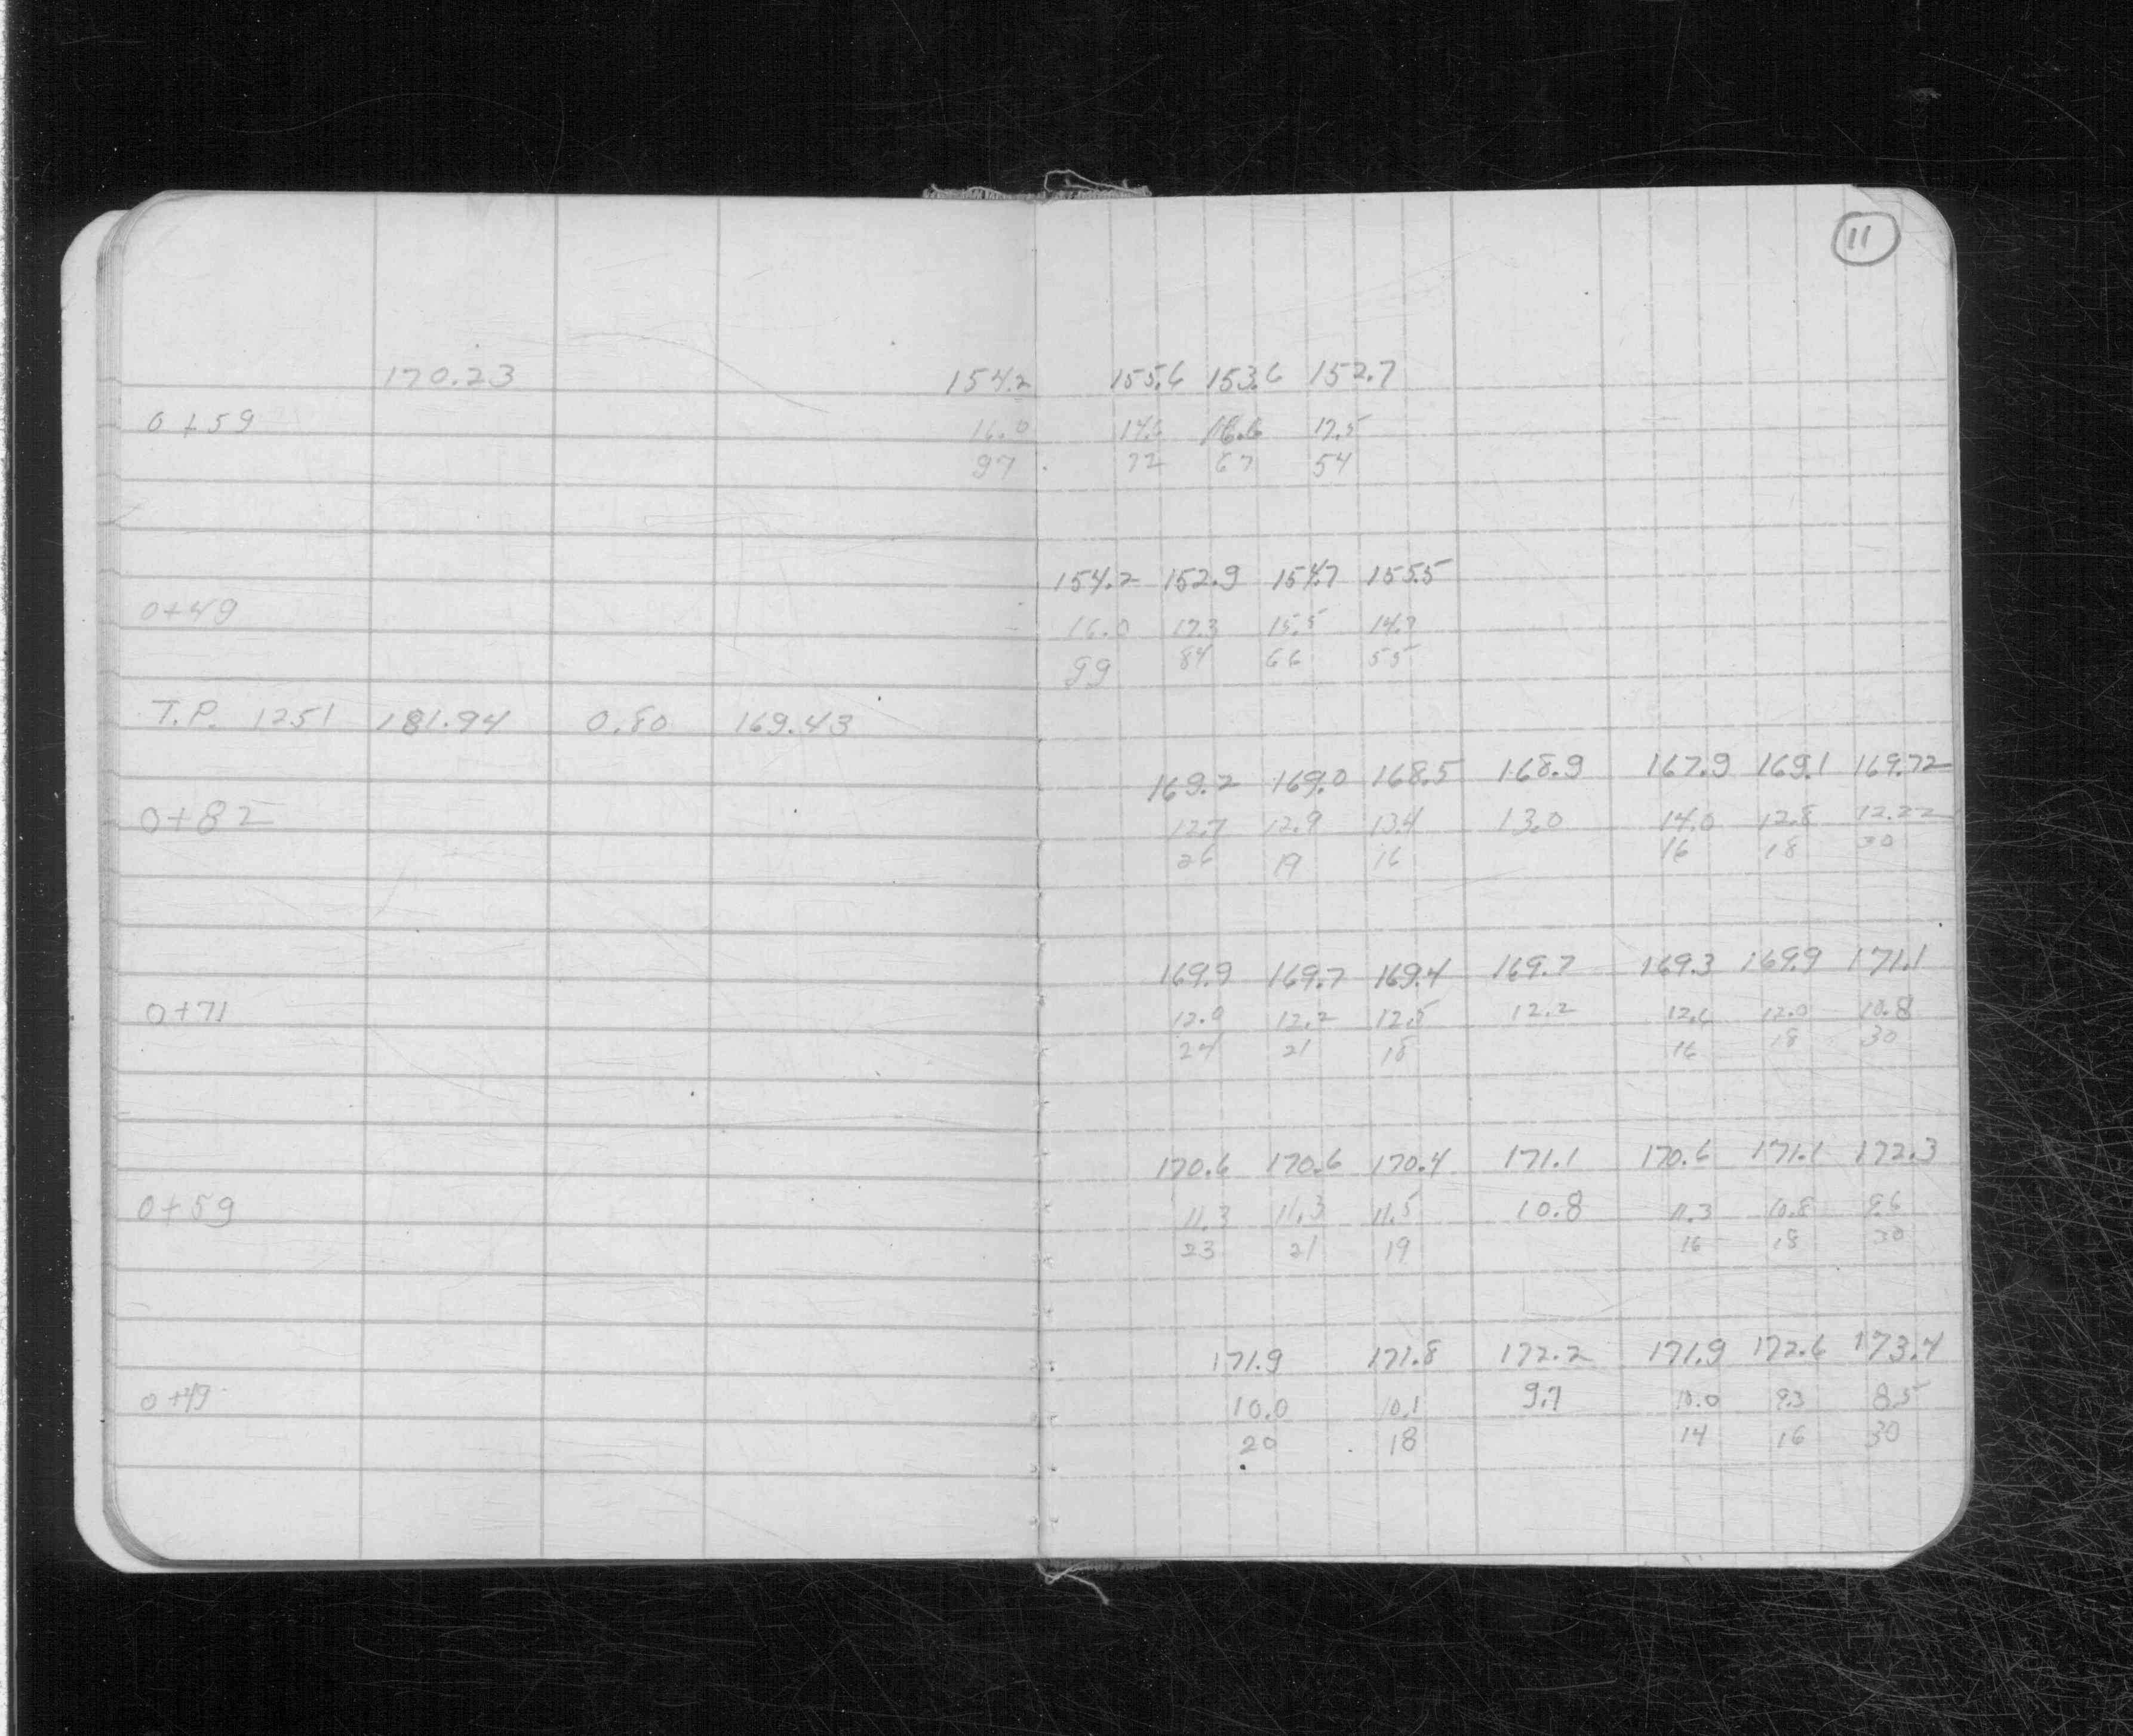 11
170.23 154.2 155.6 153.6 152.7
0+59 16.0 14.6 16.6 17.5
97 72 67 54
154.2 152.9 154.7 155.5
0+49 16.0 17.3 15.5 14.7
99 84 66 55
T.P. 1251 181.94 0.80 169.43
169.2 169.0 168.5 168.9 167.9 169.1 169.72
0+82 12.7 12.9 13.4 13.0 14.0 12.8 12.22
26 19 16 16 18 30
169.9 169.7 169.4 169.7 169.3 169.9 171.1
0+71 12.0 12.2 12.5 12.2 12.6 12.0 10.8
24 21 18 16 18 30
170.6 170.6 170.4 171.1 170.6 171.1 172.3
0+59 11.3 11.3 11.5 10.8 11.3 10.8 9.6
23 21 19 16 18 30
171.9 171.8 172.2 171.9 172.6 173.4
0+49 10.0 10.1 9.7 10.0 9.3 8.5
20 18 14 16 30